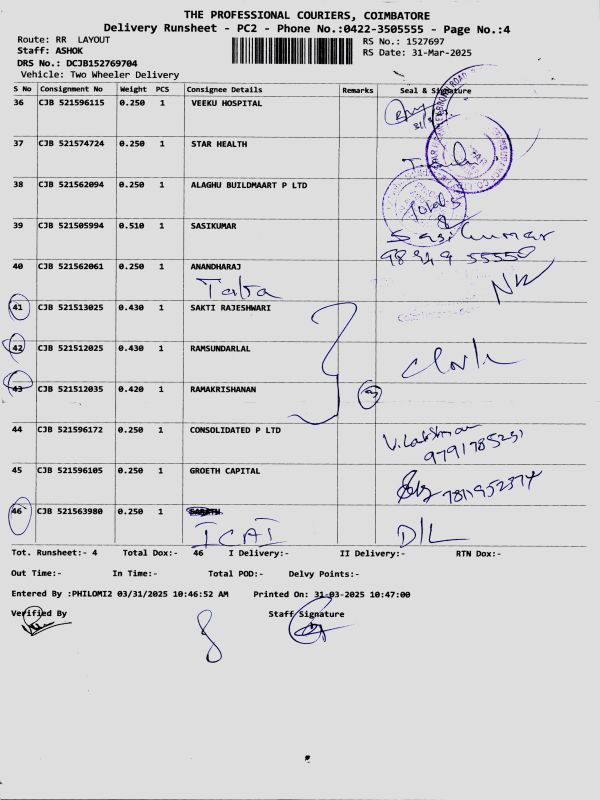 THE PROFESSIONAL COURIERS, COIMBATORE
Delivery Runsheet - PC2 - Phone No.:0422-3505555 - Page No.:4
Route: RR LAYOUT
RS No.: 1527697
Staff: ASHOK
RS Date: 31-Mar-2025
DRS No.: DCJB152769704
Vehicle: Two Wheeler Delivery
S No Consignment No Weight PCS Consignee Details Remarks Seal & Signature
36 CJB 521596115 0.250 1 VEEKU HOSPITAL
37 CJB 521574724 0.250 1 STAR HEALTH
38 CJB 521562094 0.250 1 ALAGHU BUILDMAART P LTD
39 CJB 521505994 0.510 1 SASIKUMAR Sasikumar
98949 55550
40 CJB 521562061 0.250 1 ANANDHARAJ
Tata
41 CJB 521513025 0.430 1 SAKTI RAJESHWARI
42 CJB 521512025 0.430 1 RAMSUNDARLAL
43 CJB 521512035 0.420 1 RAMAKRISHANAN
44 CJB 521596172 0.250 1 CONSOLIDATED P LTD V. Lakshman
9791785231
45 CJB 521596105 0.250 1 GROETH CAPITAL 7811952374
46 CJB 521563980 0.250 1
ICAI D/L
Tot. Runsheet:- 4 Total Dox:- 46 I Delivery:- II Delivery:- RTN Dox:-
Out Time:- In Time:- Total POD:- Delvy Points:-
Entered By :PHILOMI2 03/31/2025 10:46:52 AM Printed On: 31-03-2025 10:47:00
Verified By Staff Signature